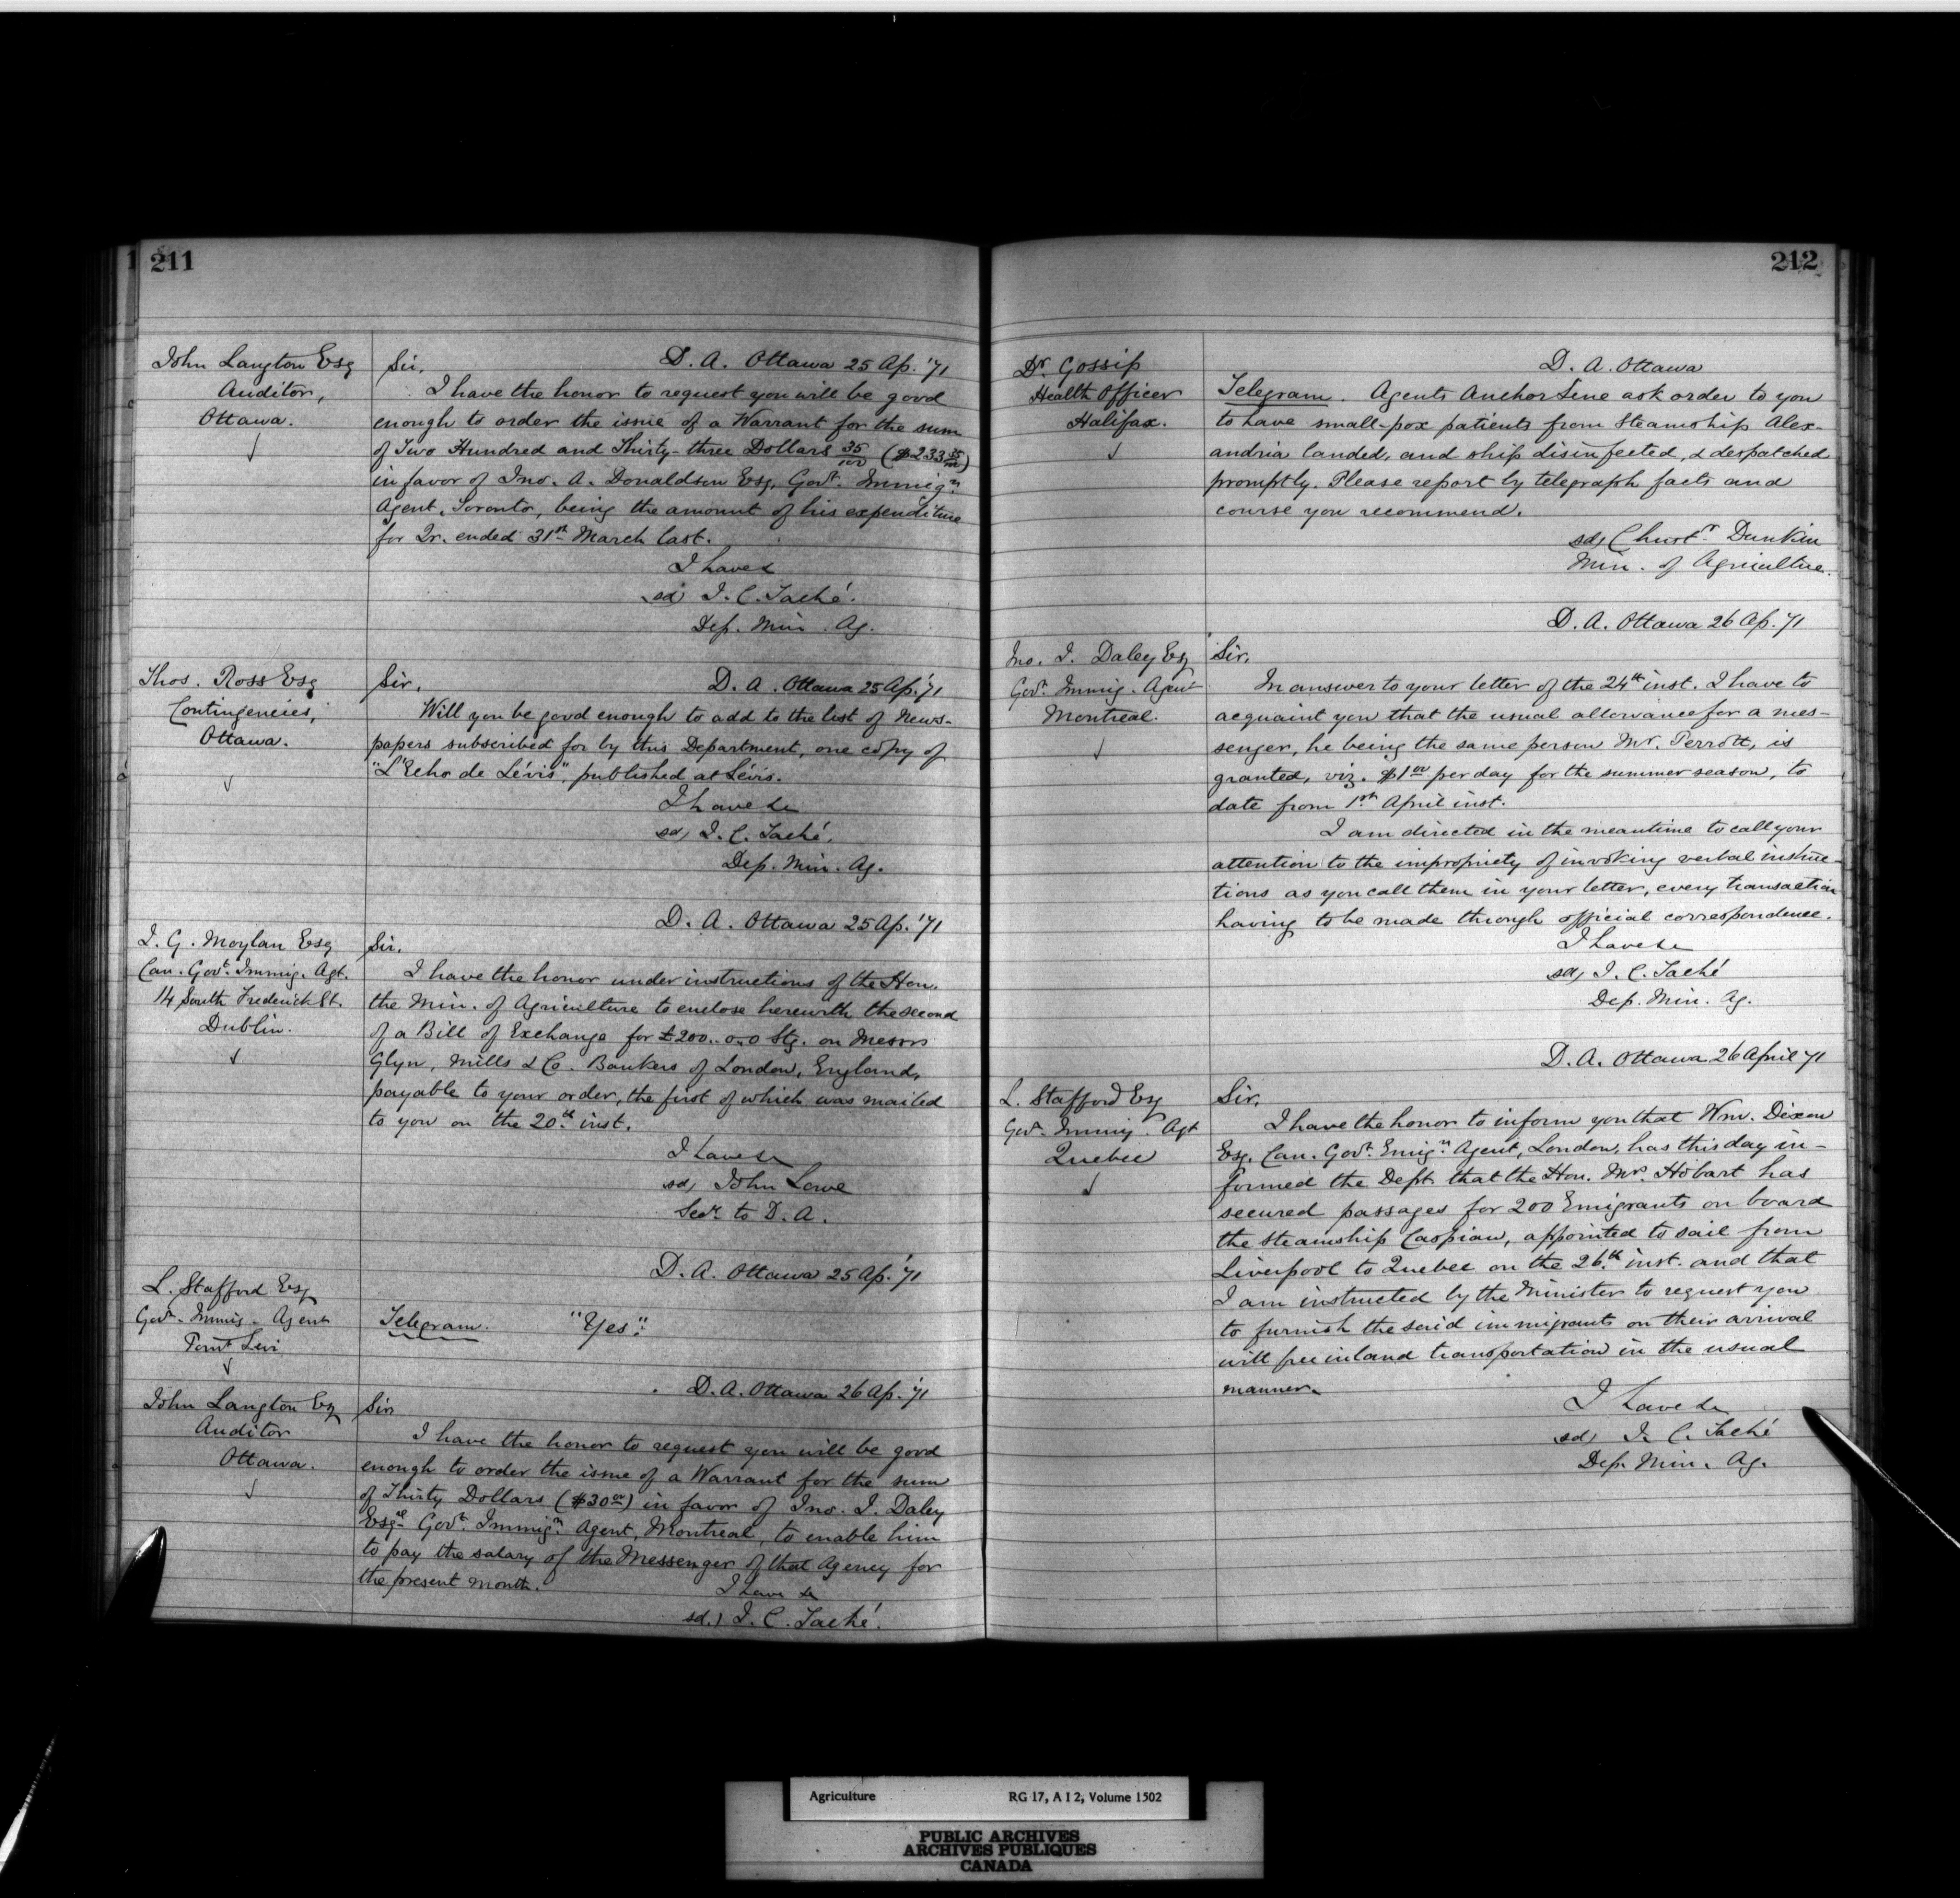 211
John Langton Esq
Auditor,
Ottawa.
Sir,
D. A. Ottawa 25 Ap. '71
I have the honor to request you will be good
enough to order the issue of a Warrant for the sum
of Two Hundred and Thirty-three Dollars 35/100 ($233 35/100)
in favor of Jno. A. Donaldson Esq, Govt. Immign.
Agent, Toronto, being the amount of his expenditure
for Qr. ended 31st March last.
I have &
sd, J. C. Taché.
Dep. Min. Ag.
Thos. Ross Esq
Contingencies,
Ottawa.
Sir,
D. A. Ottawa 25 Ap. '71
Will you be good enough to add to the list of News-
papers subscribed for by this Department, one copy of
"L'Echo de Lévis", published at Lévis.
I have &c
sd, J. C. Taché.
Dep. Min. Ag.
D. A. Ottawa 25 Ap. '71
J. G. Moylan Esq
Can. Govt. Immig. Agt.
14 South Frederick St.
Dublin.
Sir.
I have the honor under instructions of the Hon.
the Min. of Agriculture to enclose herewith the second
of a Bill of Exchange for £200..0..0 Stg. on Messrs
Glyn, Mills & Co. Bankers of London, England,
payable to your order, the first of which was mailed
to you on the 20th inst.
I have &c
sd, John Lowe
Secy. to D. A.
D. A. Ottawa 25 Ap. '71
L. Stafford Esq
Govt. Immig. Agent
Point Levi
Telegram. "Yes".
D. A. Ottawa 26 Ap. '71
John Langton Esq
Auditor
Ottawa.
Sir
I have the honor to request you will be good
enough to order the issue of a Warrant for the sum
of Thirty Dollars ($30 00) in favor of Jno. J. Daley
Esqre. Govt. Immign. Agent, Montreal, to enable him
to pay the salary of the Messenger of that Agency for
the present month.
I have &c
sd.) J. C. Taché.
212
Dr. Gossip
Health Officer
Halifax.
D. A. Ottawa
Telegram. Agents Anchor Line ask order to you
to have small-pox patients from Steamship Alex-
andria landed, and ship disinfected, & despatched
promptly. Please report by telegraph facts and
course you recommend.
sd, Christr. Dunkin
Min. of Agriculture.
D. A. Ottawa 26 Ap. 71
Jno. J. Daley Esq
Govt. Immig. Agent
Montreal.
Sir,
In answer to your letter of the 24th inst. I have to
acquaint you that the usual allowance for a mes-
senger, he being the same person Mr. Perrott, is
granted, viz. $1 00 per day for the summer season, to
date from 1st April inst.
I am directed in the meantime to call your
attention to the impropriety of invoking verbal instruc-
tions as you call them in your letter, every transaction
having to be made through official correspondence.
I have &c
sd, J. C. Taché
Dep. Min. Ag.
D. A. Ottawa 26 April 71
L. Stafford Esq
Govt. Immig. Agt
Quebec
Sir,
I have the honor to inform you that Wm. Dixon
Esq. Can. Govt. Emign. Agent, London, has this day in-
formed the Dept. that the Hon. Mrs. Hobart has
secured passages for 200 Emigrants on board
the steamship Caspian, appointed to sail from
Liverpool to Quebec on the 26th inst. and that
I am instructed by the Minister to request you
to furnish the said immigrants on their arrival
with free inland transportation in the usual
manner.
I have &c
sd, J. C. Taché
Dep. Min. Ag.
Agriculture RG 17, A I 2, Volume 1502
PUBLIC ARCHIVES
ARCHIVES PUBLIQUES
CANADA